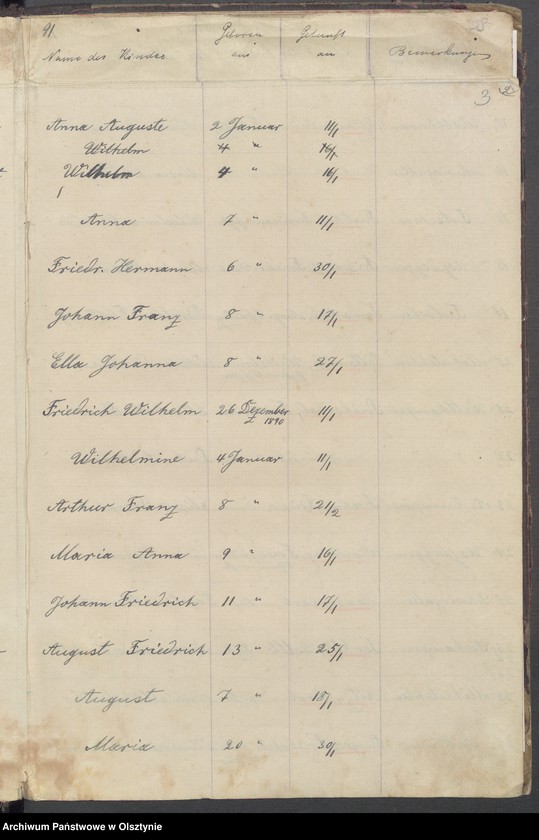 91.
Name des Kindes Geboren am Getauft am Bemerkungen
3
Anna Auguste 2 Januar 11/1
Wilhelm 4 " 16/1
Wilhelm 4 " 16/1
Anna 7 " 11/1
Friedr. Hermann 6 " 30/1
Johann Franz 8 " 17/1
Ella Johanna 8 " 27/1
Friedrich Wilhelm 26 Dezember 1890 11/1
Wilhelmine 4 Januar 11/1
Arthur Franz 8 " 21/2
Maria Anna 9 " 16/1
Johann Friedrich 11 " 17/1
August Friedrich 13 " 25/1
August 7 " 18/1
Maria 20 " 30/1
Archiwum Państwowe w Olsztynie